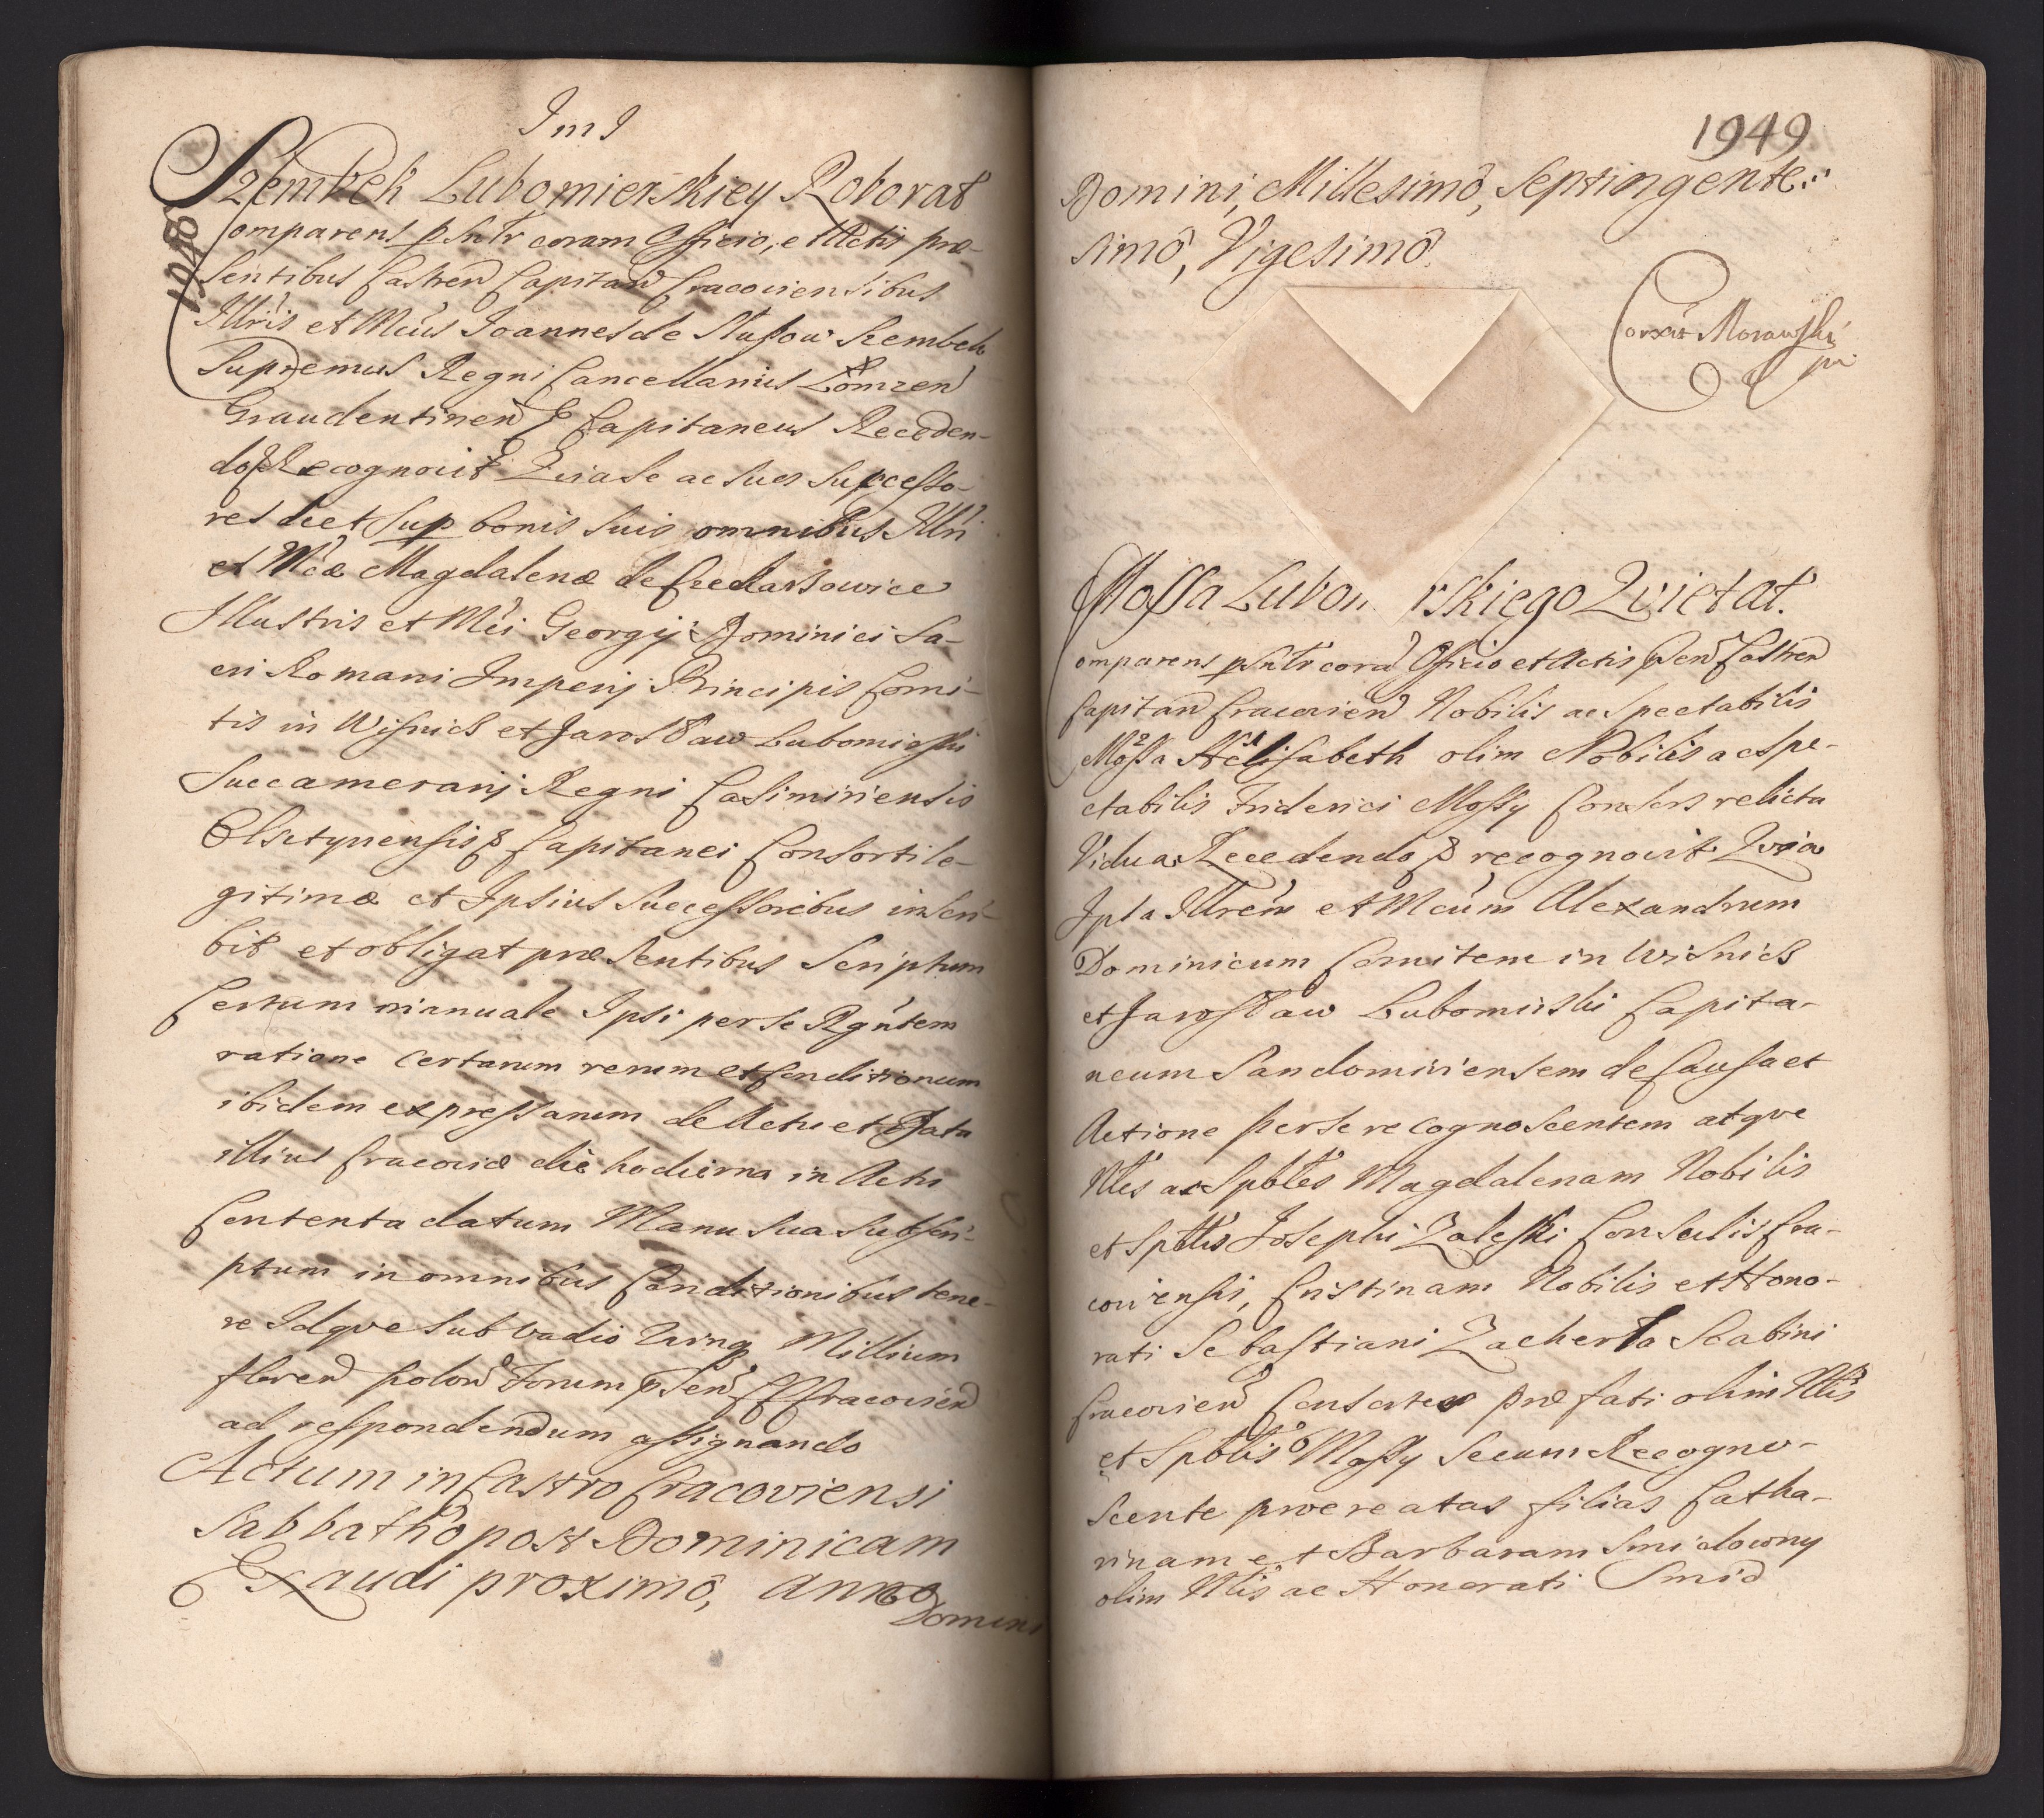 JmJ
Szembek Lubomierskiey Roborat
1948
Comparens psntr coram Officio, et Actis præ-
sentibus Castren Capitan Cracoviensibus
Illris et Mcus Joannes de Słupow Szembek
Supremus Regni Cancellarius Łomzen
Graudentinen & Capitaneus Receden-
do & Recognovit Quia Se ac suos Successo-
res
et sup bonis suis omnibus Illri
et Mcæ Magdalenæ de
Illustris et Mci Georgij Dominici Sa-
cri Romani Imperij Principis Comi-
tis in Wisnicz et Jarosław Lubomirski
Succamerarij Regni Casimiriensis
Olsztynensis & Capitanei Consorti le-
gitimæ et Ipsius Successoribus inscri-
bit et obligat præsentibus Scriptum
Certum manuale Ipsi per se Rgntem
ratione certarum rerum et Conditionum
ibidem expressarum de Actu et Data
illius Cracoviæ die hodierna in Actu
Contenta datum Manu sua subscri-
ptum in omnibus Conditionibus tene-
re Idqve sub vadio Qvinq Millium
floren polon Forum psen CCracovien
ad respondendum assignando
Actum in Castro Cracoviensi
Sabbatho post Dominicam
Exaudi proximo, Anno
Domini
1949
Domini, Millesimô, Septingente-
simô, Vigesimô.
Corxit Morawski
mp
Mossa Lubom rskiego Qvietat.
Comparens psntr corã Officio et Actis psen Castren
Capitan Cracovien Nobilis ac Spectabilis
Mossa Elisabeth olim Nobilis ac Spe-
ctabilis Friderici Mossy Consors relicta
Vidua Recedendo & recognovit Qvia
Ipsa Illrem et Mcum Alexandrum
Dominicum Comitem in Wisnicz
et Jarosław Lubomirski Capita-
neum Sandomiriensem de Causa et
Actione per se recognoscentem atqve
Nbles ac Spbles Magdalenam Nobilis
et Spblis Josephi Zaleski Consulis Cra-
coviensis, Cristinam Nobilis et Hono-
rati Sebastiani Zacherla Scabini
Cracovien Consortes præfati olim Nblis
et Spblis Mossy secum Recogno-
scente procreatas filias Catha-
rinam et Barbaram Smidowny
olim Nblis ac Honorati Smid